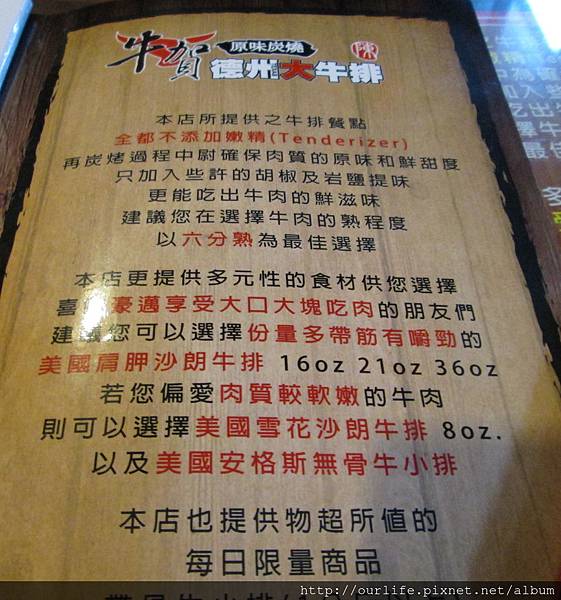 牛賀
原味炭燒
陳
德州大牛排
本店所提供之牛排餐點
全都不添加嫩精(Tenderizer)
再炭烤過程中尉確保肉質的原味和鮮甜度
只加入些許的胡椒及岩鹽提味
更能吃出牛肉的鮮滋味
建議您在選擇牛肉的熟程度
以六分熟為最佳選擇
本店更提供多元性的食材供您選擇
喜 豪邁享受大口大塊吃肉的朋友們
建議您可以選擇份量多帶筋有嚼勁的
美國肩胛沙朗牛排 16oz 21oz 36oz
若您偏愛肉質較軟嫩的牛肉
則可以選擇美國雪花沙朗牛排 8oz.
以及美國安格斯無骨牛小排
本店也提供物超所值的
每日限量商品
http://ourlife.pixnet.net/album